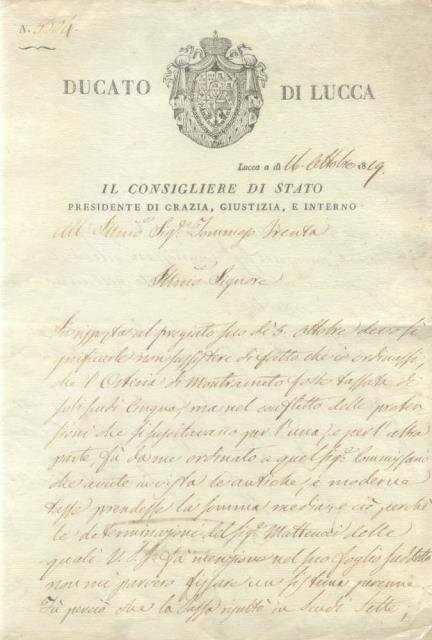 N. 5504.
DUCATO DI LUCCA
Lucca a dì 16. Ottobre 1819.
IL CONSIGLIERE DI STATO
PRESIDENTE DI GRAZIA, GIUSTIZIA, E INTERNO
All' Illmo Sigr. Tommaso Trenta
Illmo Signore
In risposta al pregiato suo de' 5. Ottobre devo si
gnificarle non sussistere di fatto che io ordinassi
che l'Osteria di fosse tassata di
soli scudi Cinque, ma nel conflitto delle preten
sioni che si suscitavano per l'una, e per l'altra
parte, fù da me ordinato a quel Sigr. Commissario
che avute in vista le antiche, e moderne
tasse prendesse la somma media, e ciò perchè
le determinazioni del Sigr. delle
quali V. S. fà menzione nel suo foglio suddetto
non mi parvero fissare un sistema perenne
Fù perciò che la Tassa risultò in Scudi Sette,